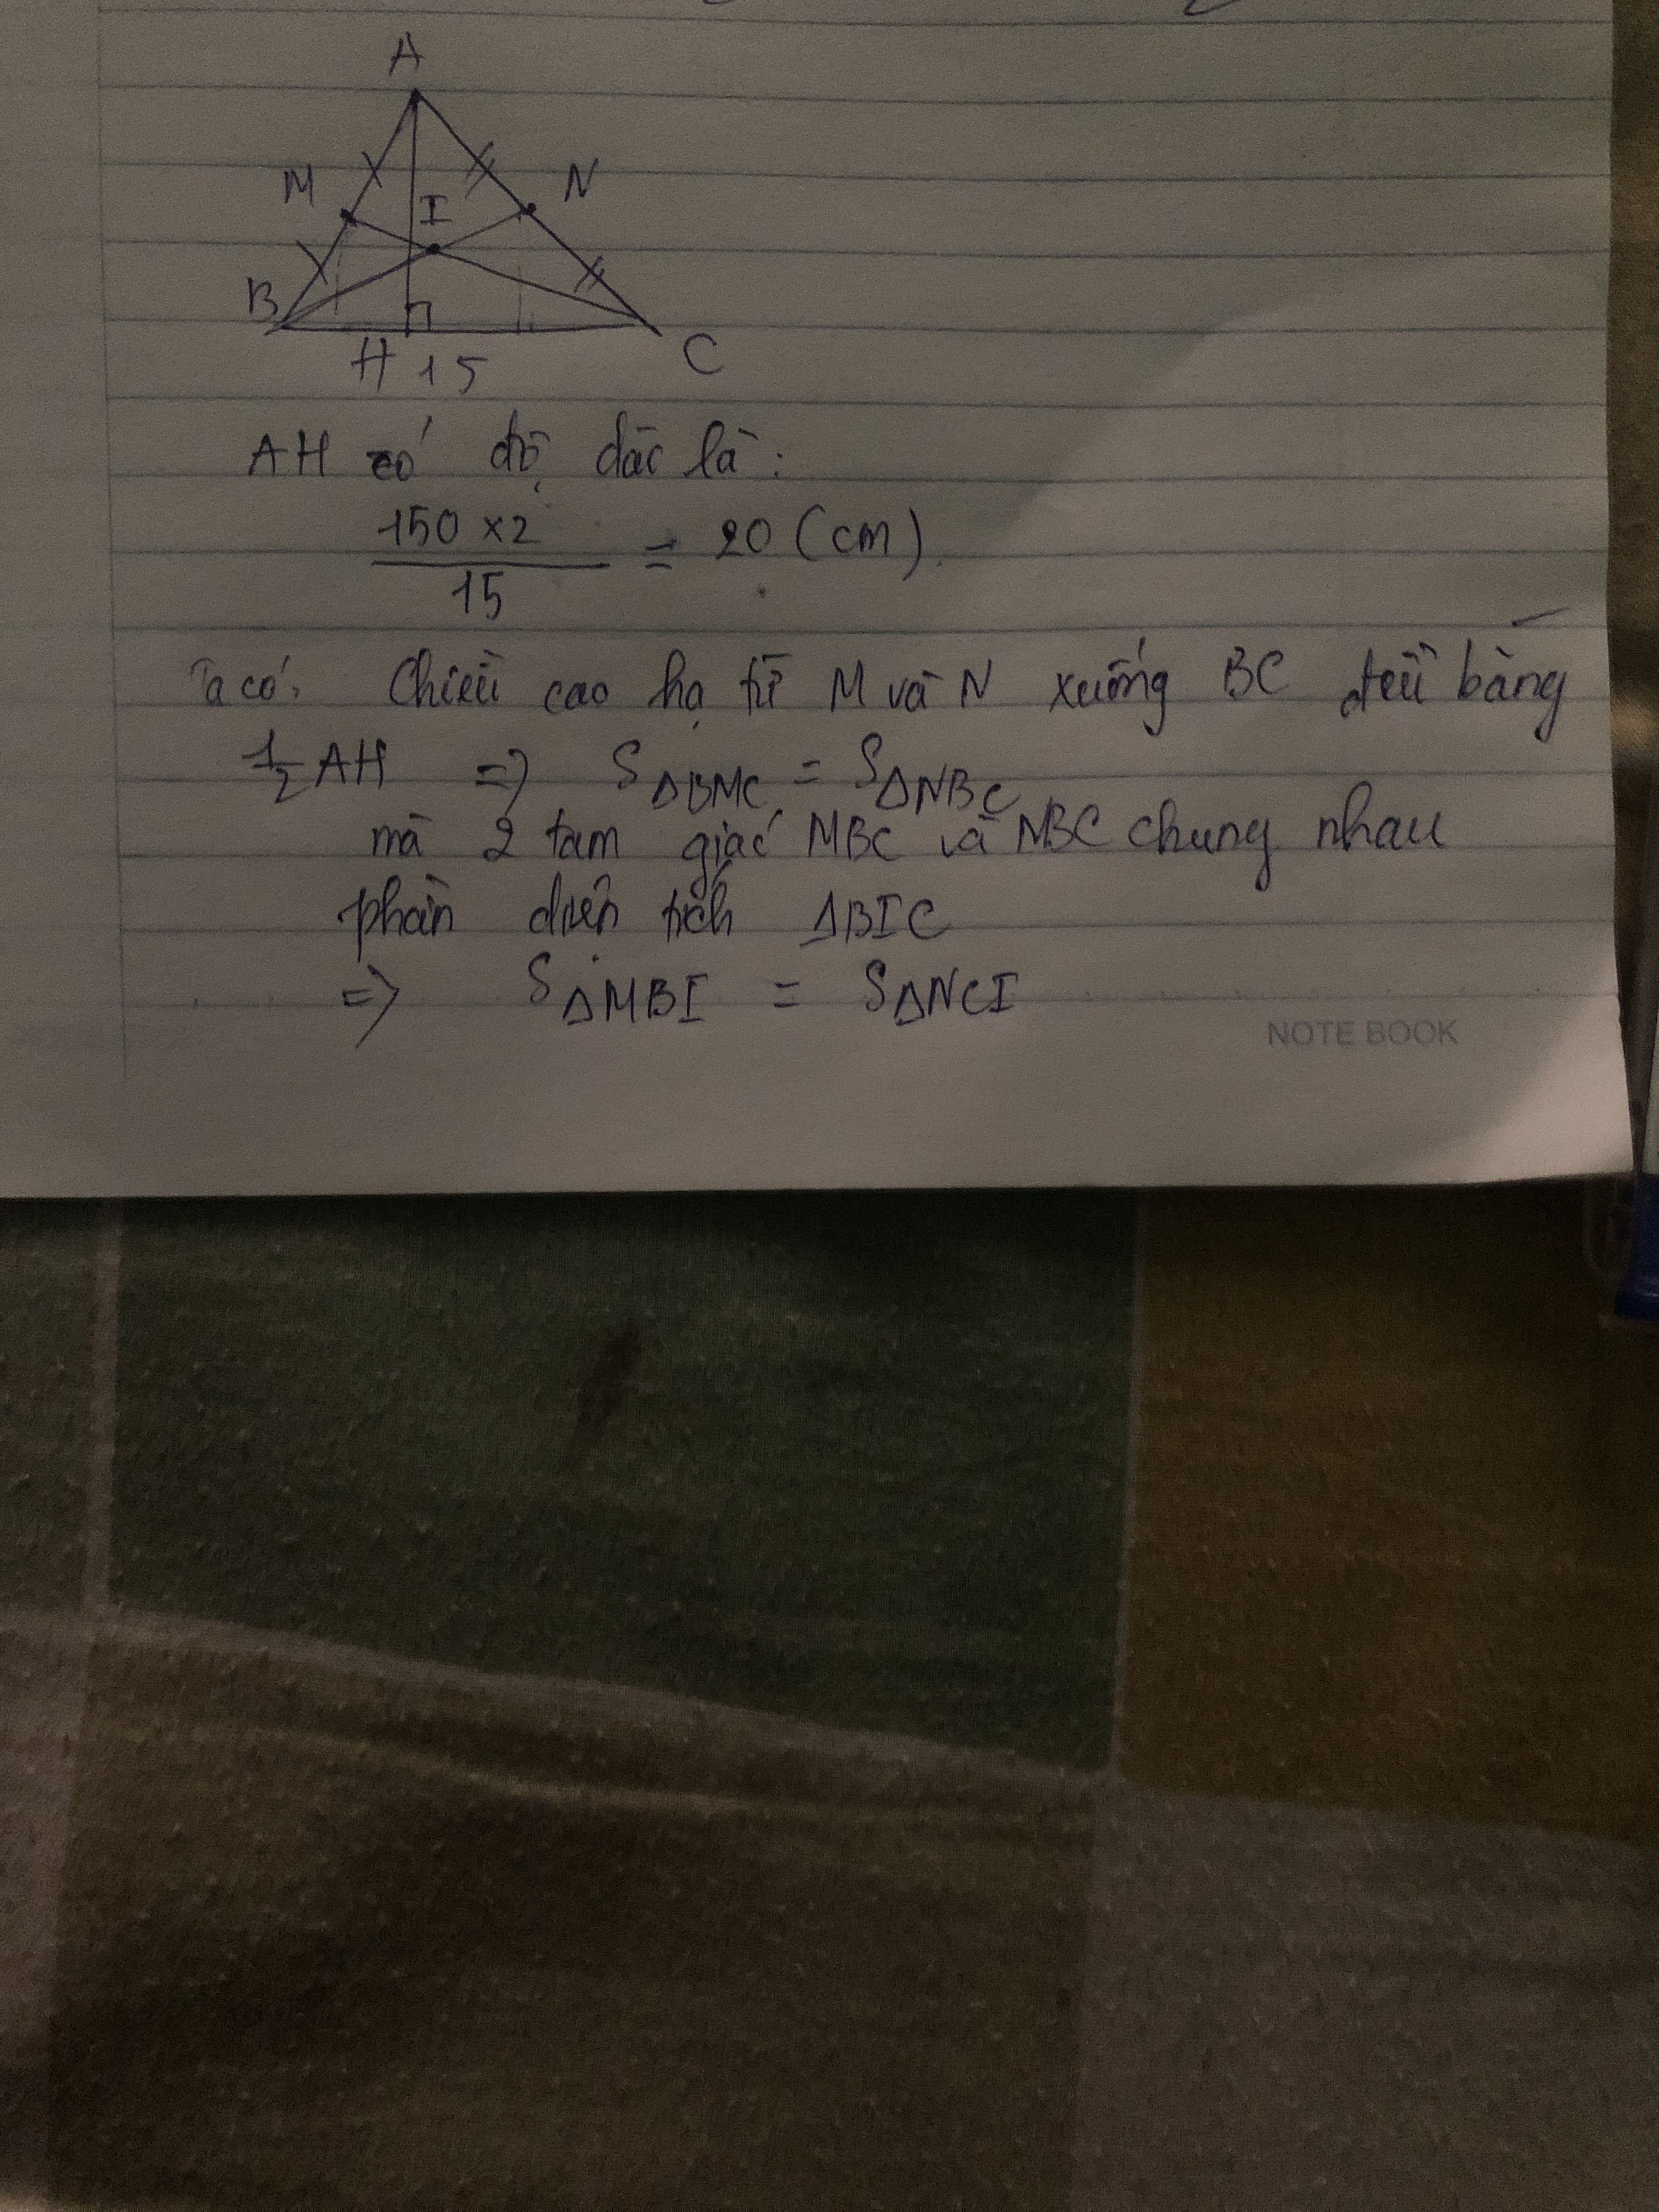 A
M
N
I
B
H 15
C
AH có độ dài là:
150 x 2
= 20 (cm).
15
Ta có: Chiều cao hạ từ M và N xuống BC đều bằng
1/2 AH => SΔBMC = SΔNBC
mà 2 tam giác MBC và NBC chung nhau
phần diện tích ΔBIC
=> SΔMBI = SΔNCI
NOTE BOOK